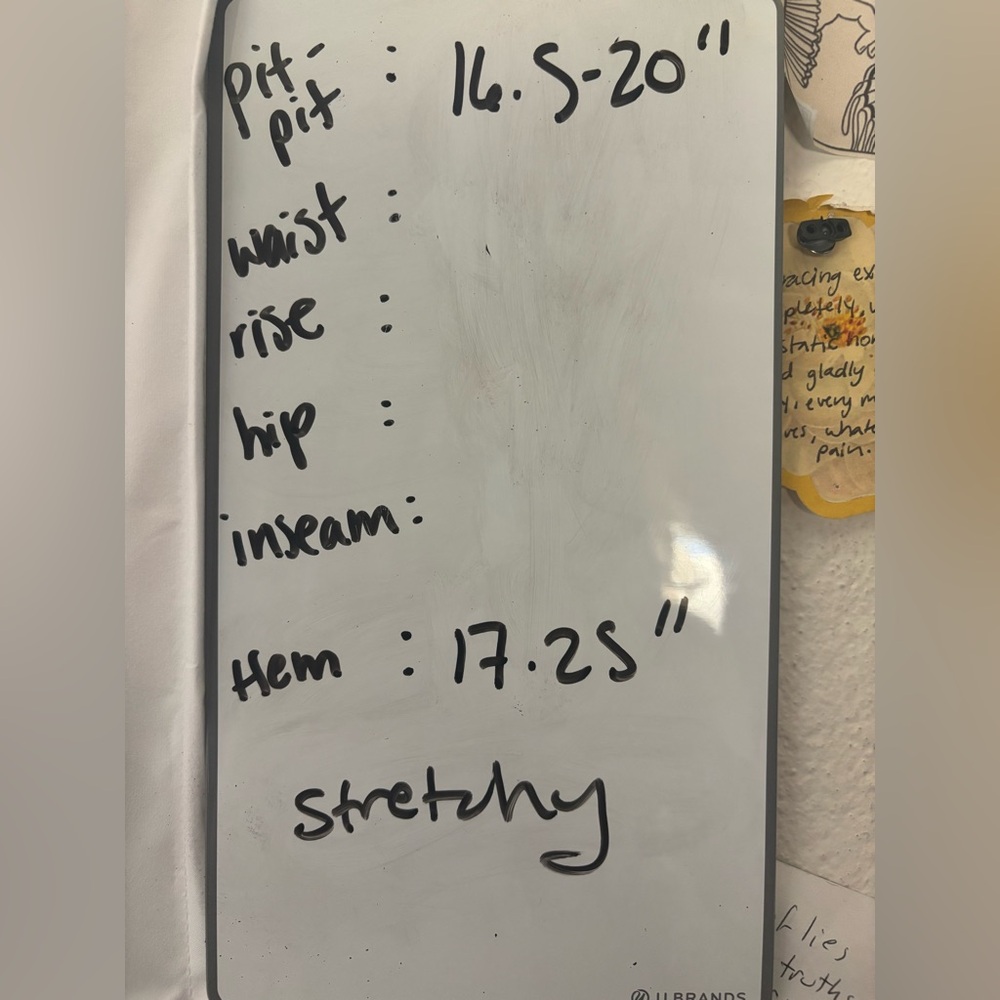 pit-
pit : 16.5-20"
waist :
rise :
hip :
inseam:
Hem : 17.25"
stretchy
U BRANDS
racing ex
pletely,
static hon
d gladly
y, every m
ves, whate
pain.
f lies
truths